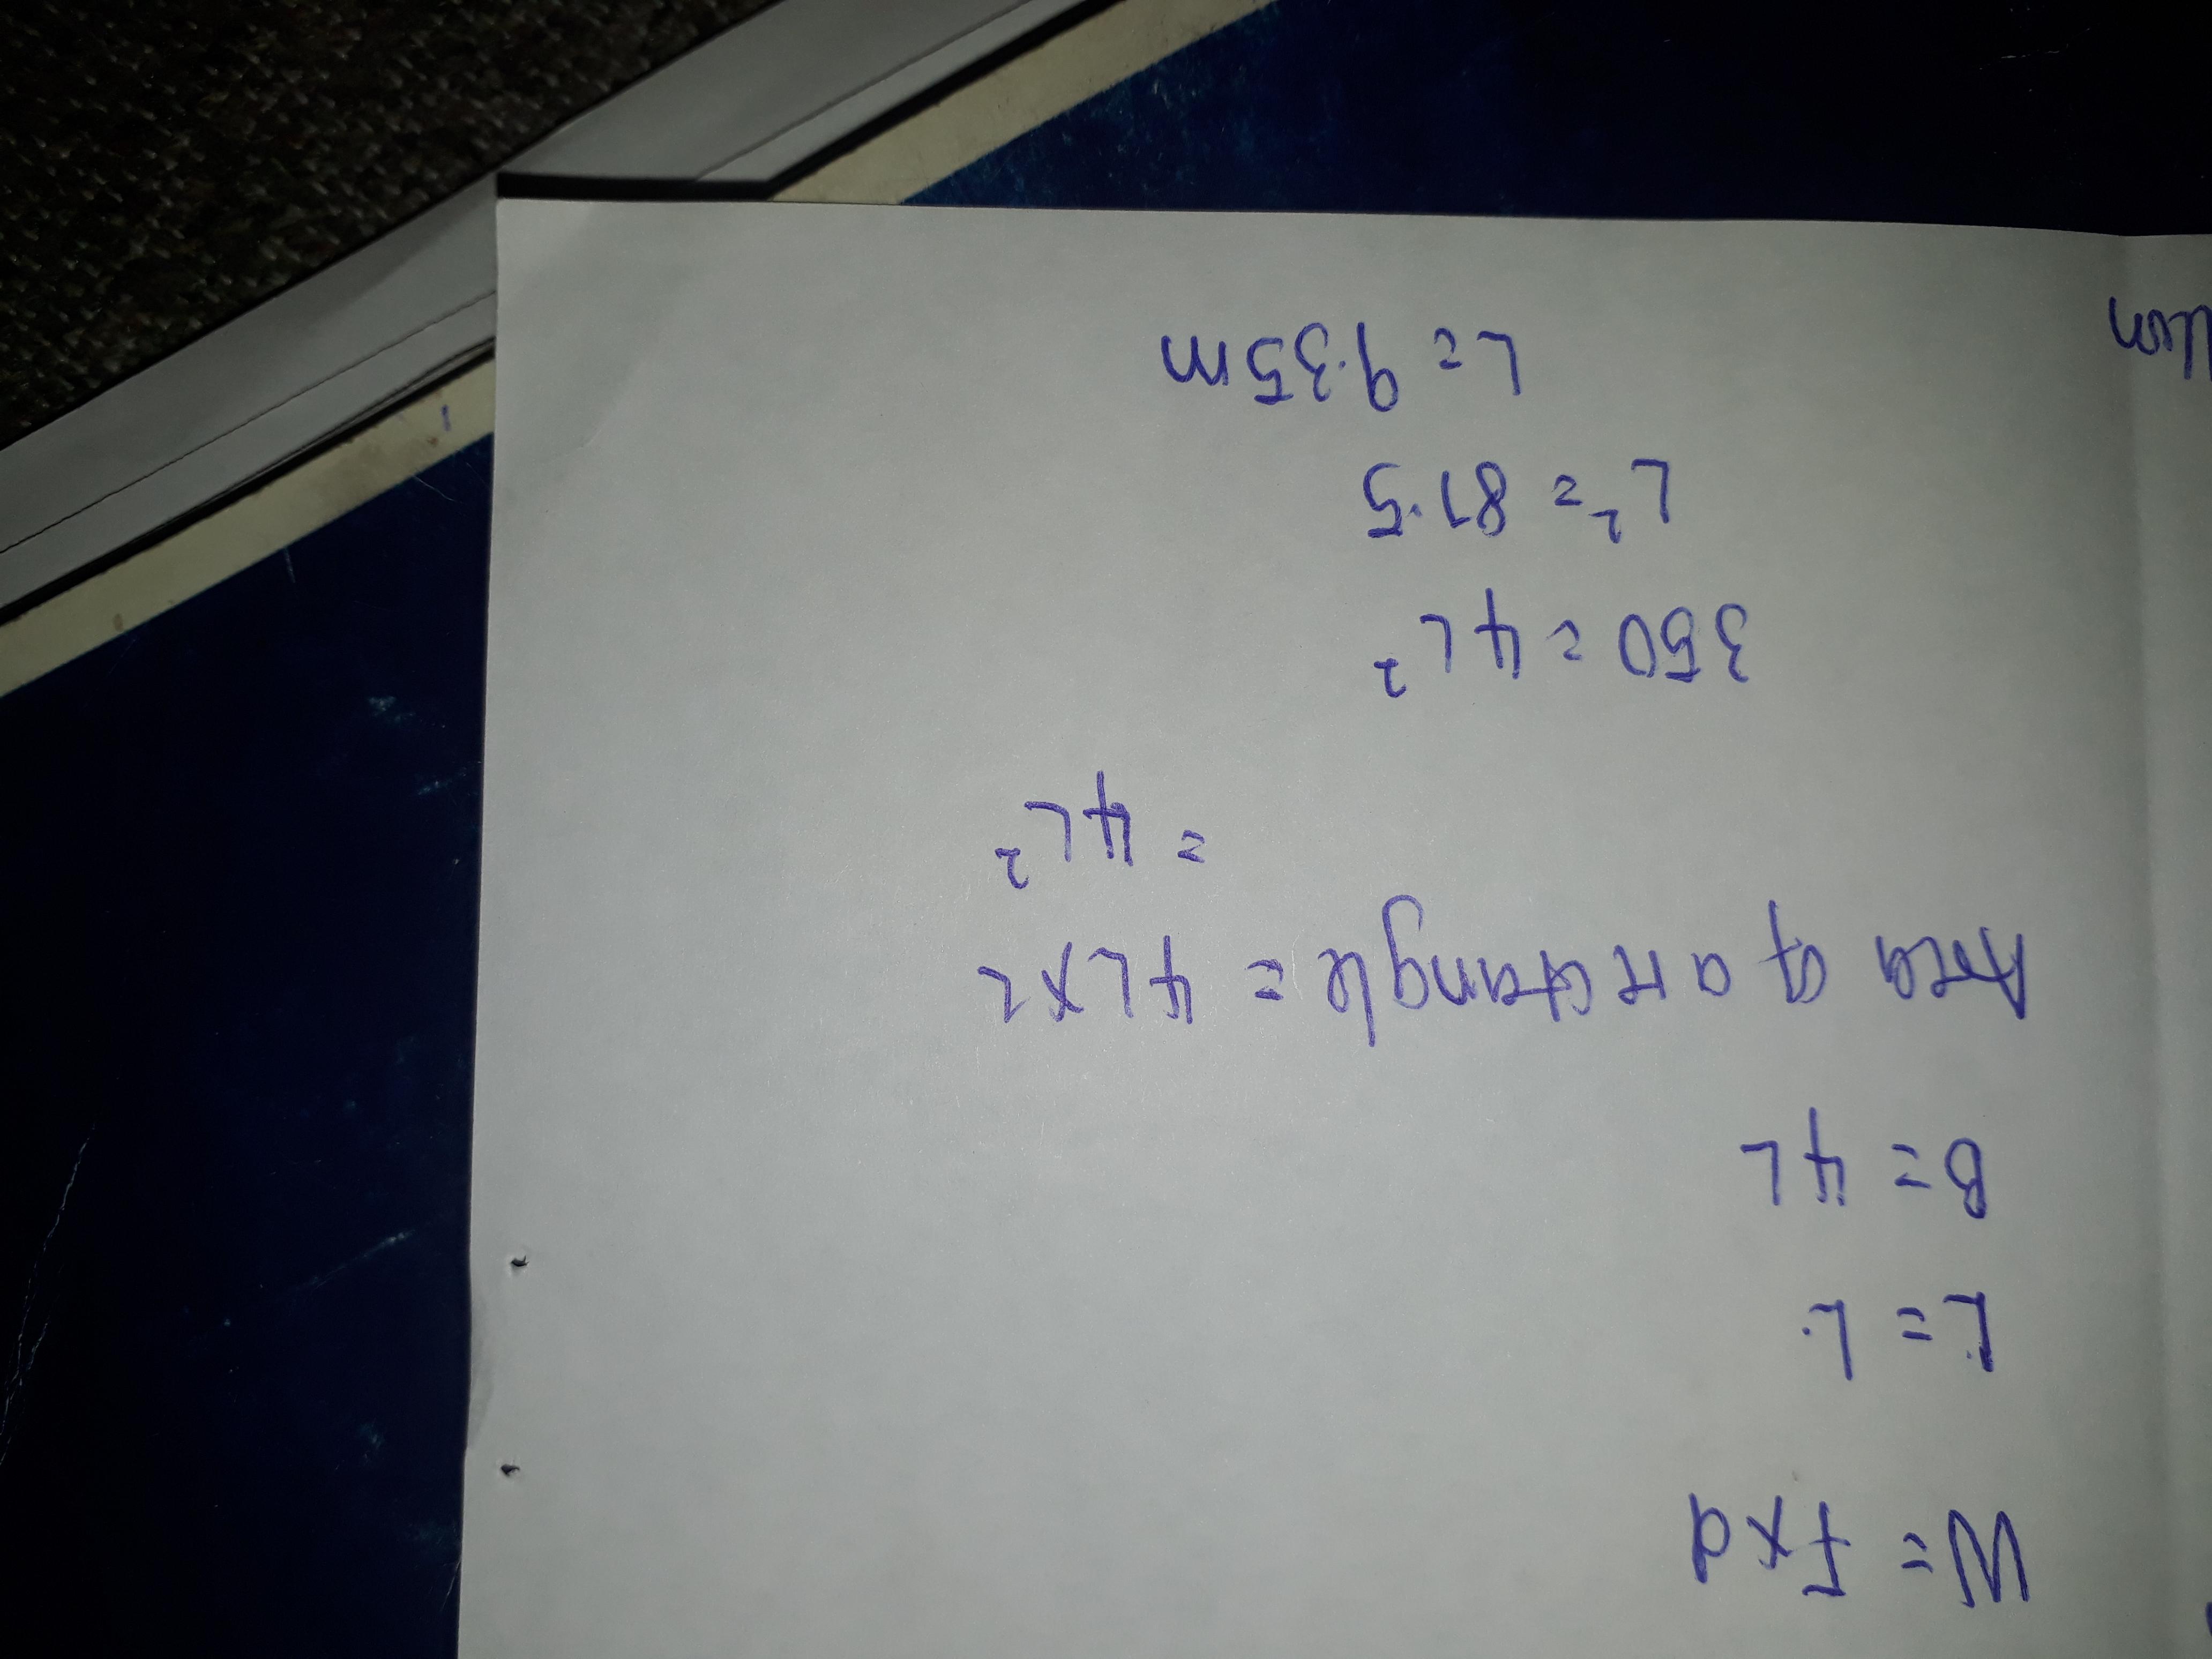 W = F x d
L = L
B = 4L
Area of a rectangle = 4L x L
= 4L²
350 = 4L²
L² = 87.5
L = 9.35m